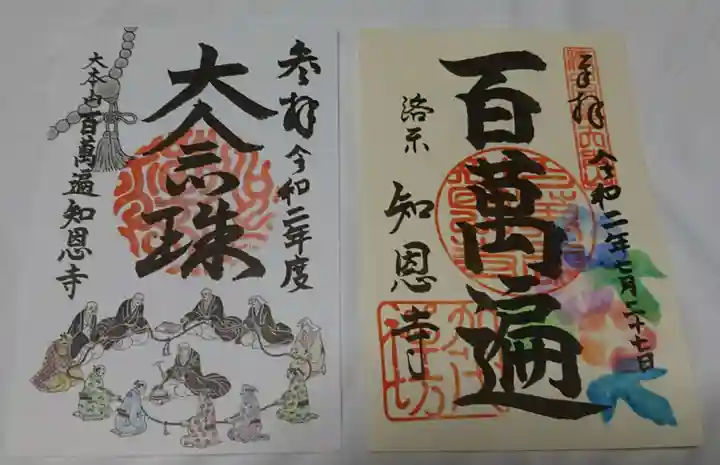 参拝 令和二年度
大念珠
大本山百萬遍知恩寺
奉拝 令和二年七月二十七日
百萬遍
洛东 知恩寺